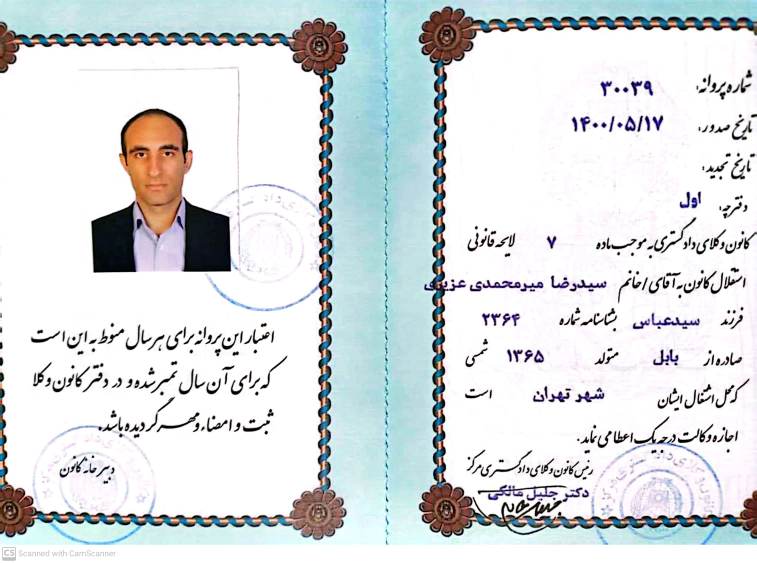 شماره پروانه: ۳۰۰۳۹
تاریخ صدور: ۱۴۰۰/۰۵/۱۷
تاریخ تجدید:
دفترچه: اول
کانون وکلای دادگستری به موجب ماده ۷ لایحه قانونی
استقلال کانون به آقای / خانم سیدرضا میرمحمدی عزیزی
فرزند سیدعباس بشناسنامه شماره ۲۳۶۴
صادره از بابل متولد ۱۳۶۵ شمسی
که محل اشتغال ایشان شهر تهران است
اجازه وکالت درجه یک اعطا می نماید.
رئیس کانون وکلای دادگستری مرکز
دکتر جلیل مالکی
اعتبار این پروانه برای هر سال منوط به این است
که برای آن سال تمبر شده و در دفتر کانون وکلا
ثبت و امضاء و مهر گردیده باشد.
دبیرخانه کانون
CS Scanned with CamScanner